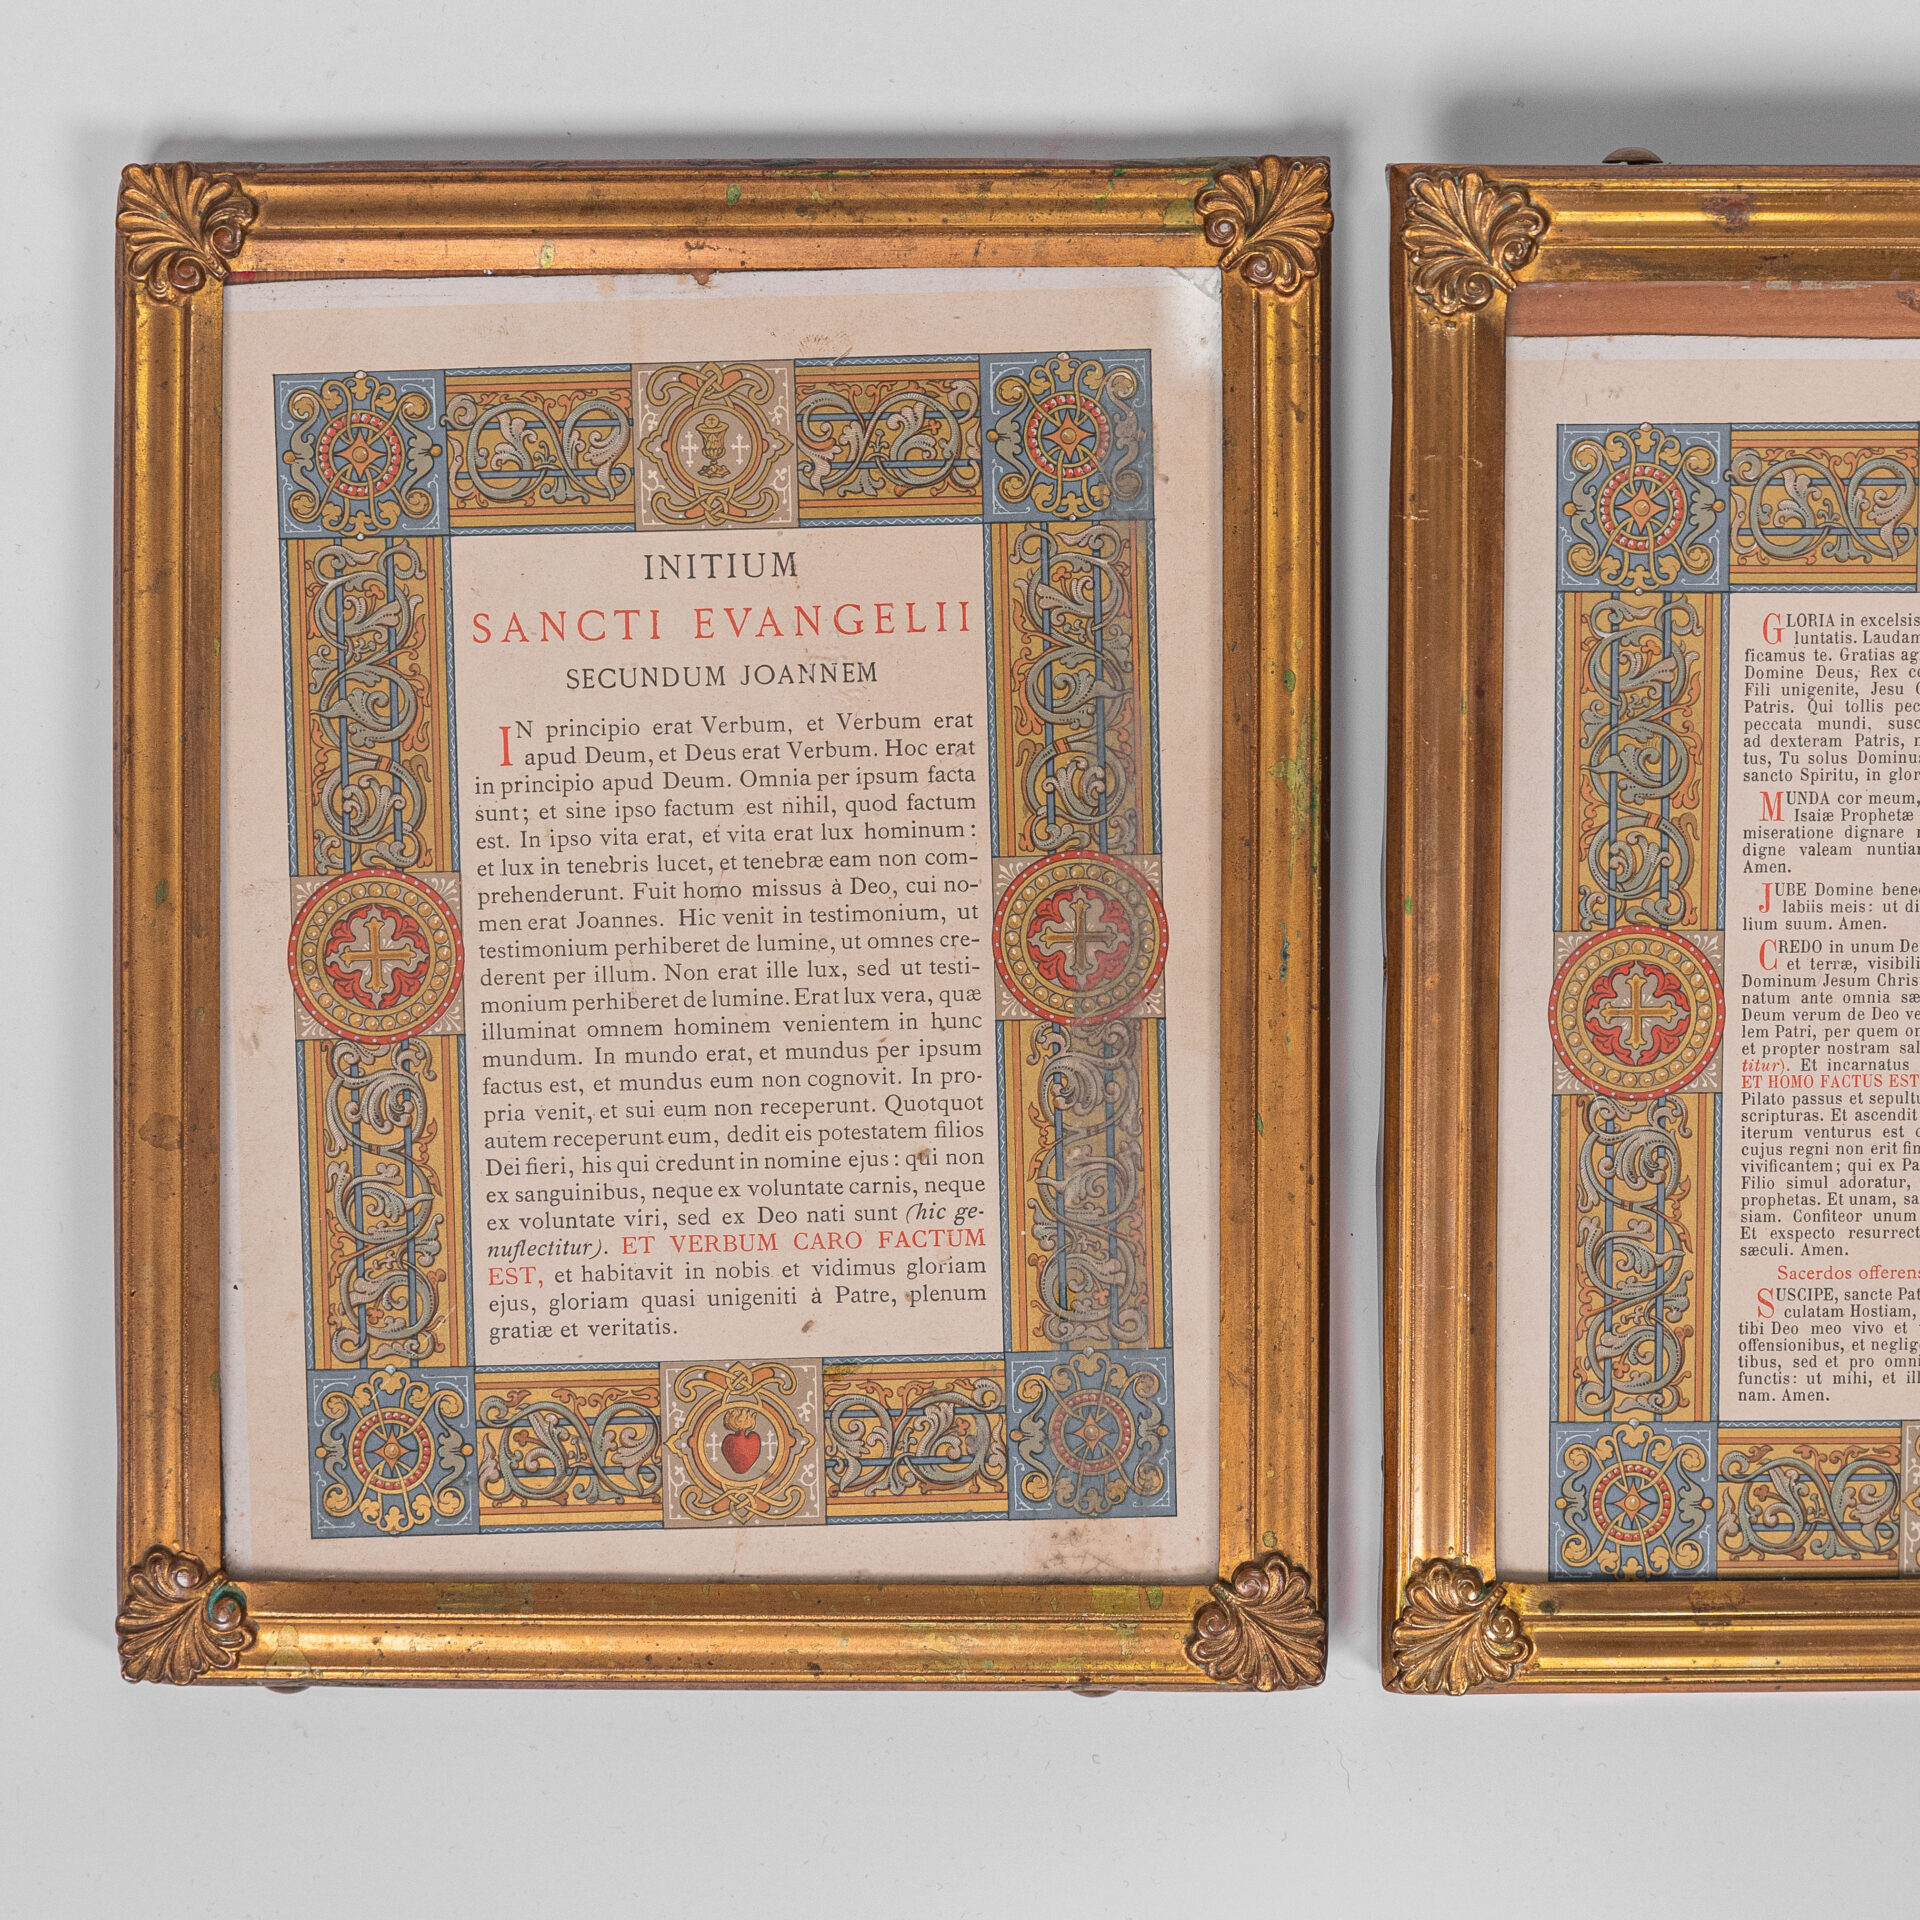 INITIUM
SANCTI EVANGELII
SECUNDUM JOANNEM
IN principio erat Verbum, et Verbum erat
apud Deum, et Deus erat Verbum. Hoc erat
in principio apud Deum. Omnia per ipsum facta
sunt; et sine ipso factum est nihil, quod factum
est. In ipso vita erat, et vita erat lux hominum:
et lux in tenebris lucet, et tenebræ eam non com-
prehenderunt. Fuit homo missus à Deo, cui no-
men erat Joannes. Hic venit in testimonium, ut
testimonium perhiberet de lumine, ut omnes cre-
derent per illum. Non erat ille lux, sed ut testi-
monium perhiberet de lumine. Erat lux vera, quæ
illuminat omnem hominem venientem in hunc
mundum. In mundo erat, et mundus per ipsum
factus est, et mundus eum non cognovit. In pro-
pria venit, et sui eum non receperunt. Quotquot
autem receperunt eum, dedit eis potestatem filios
Dei fieri, his qui credunt in nomine ejus: qui non
ex sanguinibus, neque ex voluntate carnis, neque
ex voluntate viri, sed ex Deo nati sunt (hic ge-
nuflectitur). ET VERBUM CARO FACTUM
EST, et habitavit in nobis et vidimus gloriam
ejus, gloriam quasi unigeniti à Patre, plenum
gratiæ et veritatis.
GLORIA in excelsis
luntatis. Laudam
ficamus te. Gratias ag
Domine Deus, Rex co
Fili unigenite, Jesu
Patris. Qui tollis pec
peccata mundi, susc
ad dexteram Patris,
tus, Tu solus Dominus
sancto Spiritu, in glor
MUNDA cor meum,
Isaiæ Prophetæ
miseratione dignare
digne valeam nuntia
Amen.
JUBE Domine bene
labiis meis: ut di
lium suum. Amen.
CREDO in unum De
et terræ, visibili
Dominum Jesum Chris
natum ante omnia sæ
Deum verum de Deo ve
lem Patri, per quem o
et propter nostram sal
titur). Et incarnatus
ET HOMO FACTUS EST
Pilato passus et sepultu
scripturas. Et ascendit
iterum venturus est
cujus regni non erit fin
vivificantem; qui ex Pa
Filio simul adoratur,
prophetas. Et unam, sa
siam. Confiteor unum
Et exspecto resurrect
sæculi. Amen.
Sacerdos offerens
SUSCIPE, sancte Pat
culatam Hostiam,
tibi Deo meo vivo et
offensionibus, et neglig
tibus, sed et pro omni
functis: ut mihi, et ill
nam. Amen.